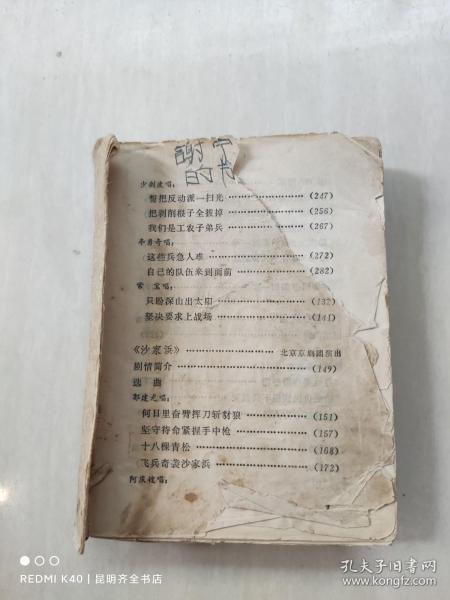 谢宁
的书
少剑波唱:
誓把反动派一扫光 (247)
把剥削根子全拔掉 (256)
我们是工农子弟兵 (267)
李勇奇唱:
这些兵急人难 (272)
自己的队伍来到面前 (282)
常宝唱:
只盼深山出太阳 (137)
坚决要求上战场 (141)
《沙家浜》 北京京剧团演出
剧情简介 (149)
选曲
郭建光唱:
何日里奋臂挥刀斩豺狼 (151)
坚守待命紧握手中枪 (157)
十八棵青松 (168)
飞兵奇袭沙家浜 (172)
阿庆嫂唱:
REDMI K40 | 昆明齐全书店
孔夫子旧书网
www.kongfz.com